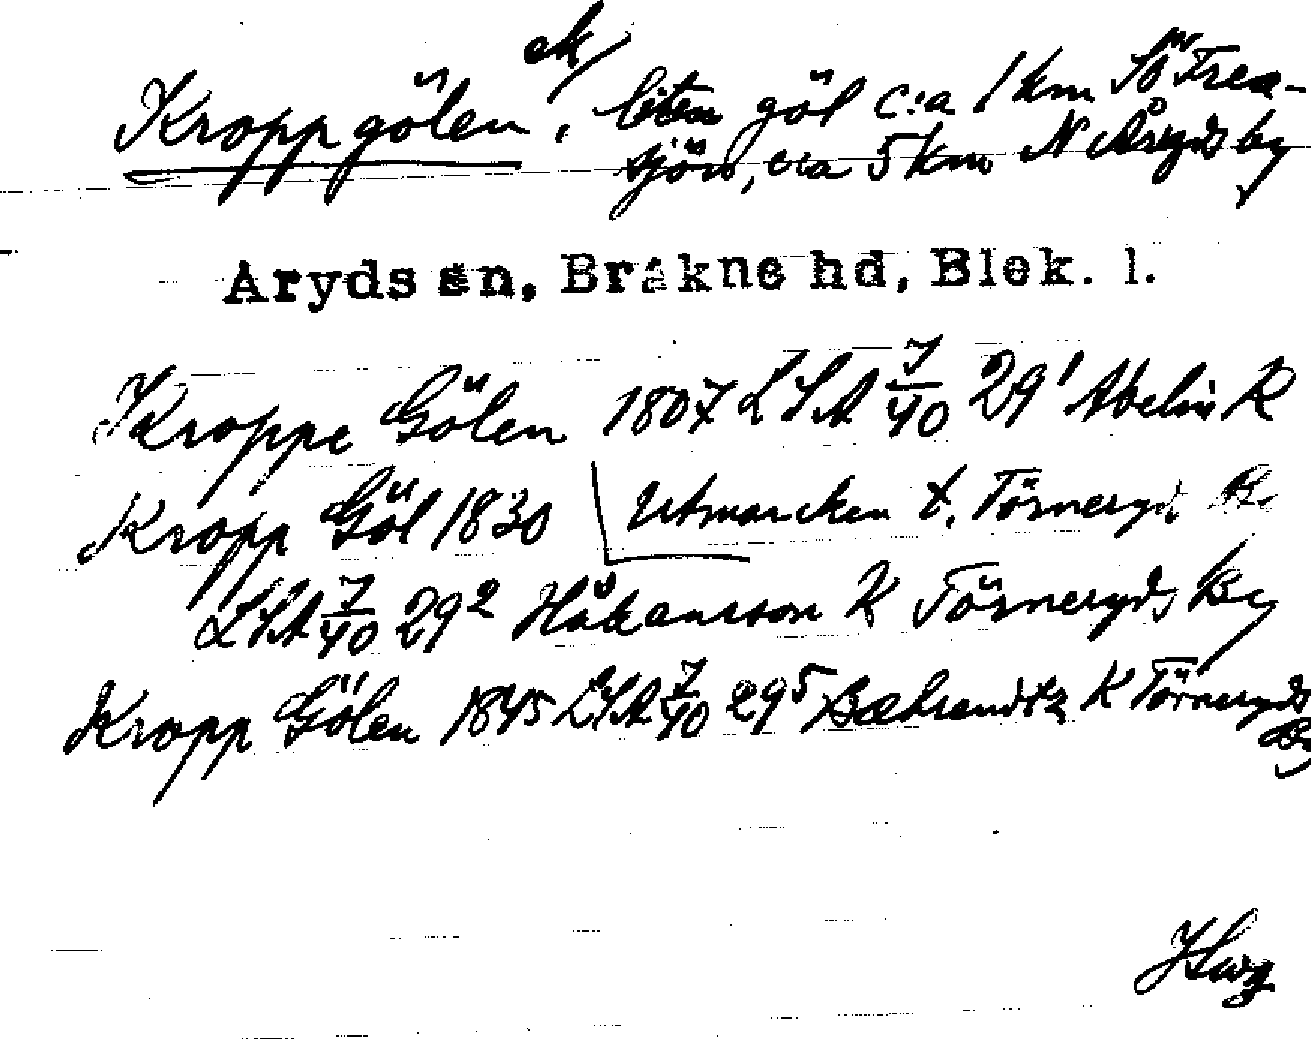 Kroppgölen ek/, liten göl c:a 1 km SÖ Trea-
sjön, c:a 5 km N Åryds by
Åryds sn, Bräkne hd, Blek. l.
Kroppe Gölen 1807 LSA 7/40 29¹ Abelin K
Kropp Göl 1830 Utmarcken t. Törneryd
LSA 7/40 29² Håkansson K Törneryds By
Kropp Gölen 1845 LSA 7/40 29⁵ Bæhrendtz K Törneryds
By